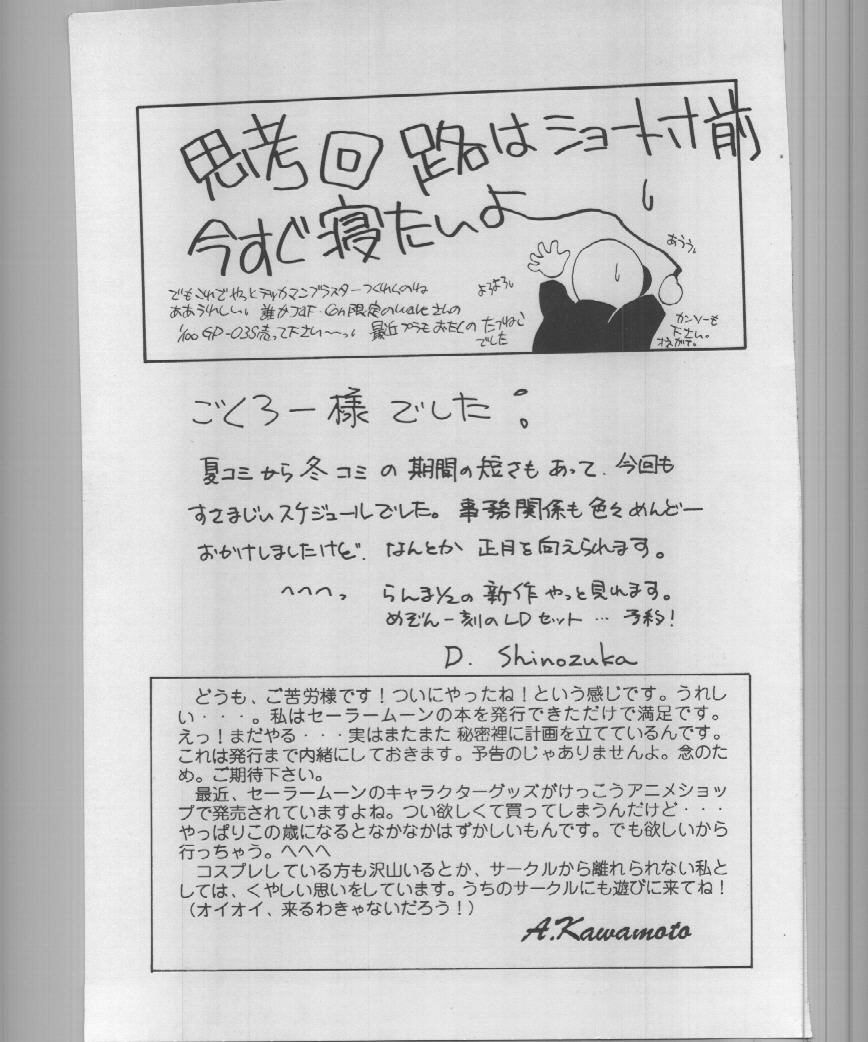 思考回路はショート寸前
今すぐ寝たいよ
あうう。
よろよろ。
でもこれでやっとテッカマンブラスターつくれるのね
ああうれしい。誰かJAF・Con限定のwaveさんの
1/100 GP-03S売って下さい〜〜。最近プラモおたくの
でした
カンソーも
下さい。
ごくろー様でした。
夏コミから冬コミの期間の短さもあって、今回も
すさまじいスケジュールでした。事務関係も色々めんどー
おかけしましたけど、なんとか正月を向えられます。
へへへっ らんま1/2の新作やっと見れます。
めぞん一刻のLDセット…予約!
D. Shinozuka
どうも、ご苦労様です!ついにやったね!という感じです。うれし
い・・・。私はセーラームーンの本を発行できただけで満足です。
えっ!まだやる・・・実はまたまた 秘密裡に計画を立てているんです。
これは発行まで内緒にしておきます。予告のじゃありませんよ。念のた
め。ご期待下さい。
最近、セーラームーンのキャラクターグッズがけっこうアニメショッ
プで発売されていますよね。つい欲しくて買ってしまうんだけど・・・
やっぱりこの歳になるとなかなかはずかしいもんです。でも欲しいから
行っちゃう。へへへ
コスプレしている方も沢山いるとか、サークルから離れられない私と
しては、くやしい思いをしています。うちのサークルにも遊びに来てね!
(オイオイ、来るわきゃないだろう!)
A.Kawamoto